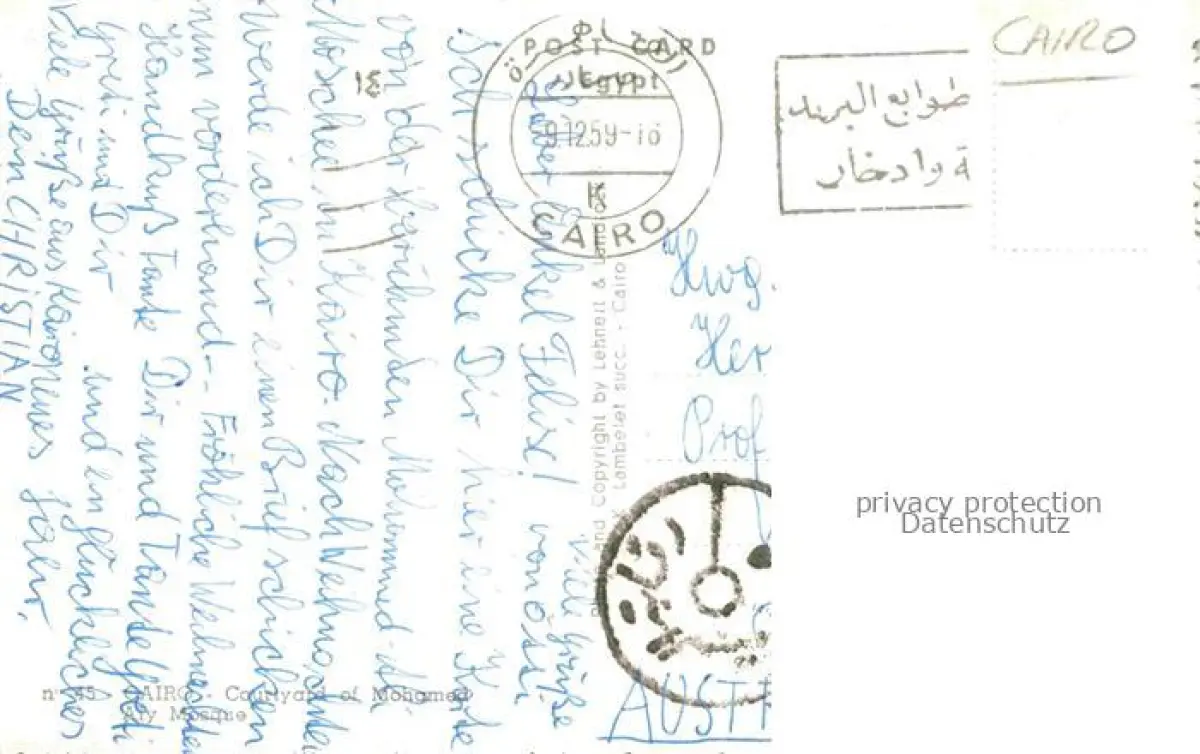 POST CARD
Egypt
9.12.59-18
K
CAIRO
١٤
طوابع البريد
ة وادخار
CAIRO
Lieber Onkel Felix!
Ich schicke Dir hier eine Karte
von der berühmten Mohammed-Ali
Moschee in Kairo. Nach Weihnachten
werde ich Dir einen Brief schicken
nun vorderhand -- Fröhliche Weihnachten
Handkuß Tante Dir und Tante Greti
Greti und Dir und ein glückliches
Viele Grüße aus Kairo neues Jahr.
Dein CHRISTIAN
Viele Grüße
von
and Copyright by Lehnert &
Lambelet succ. - Cairo
Her
Prof
AUST
n° 45 CAIRO - Courtyard of Mohamed
Aly Mosque
privacy protection
Datenschutz